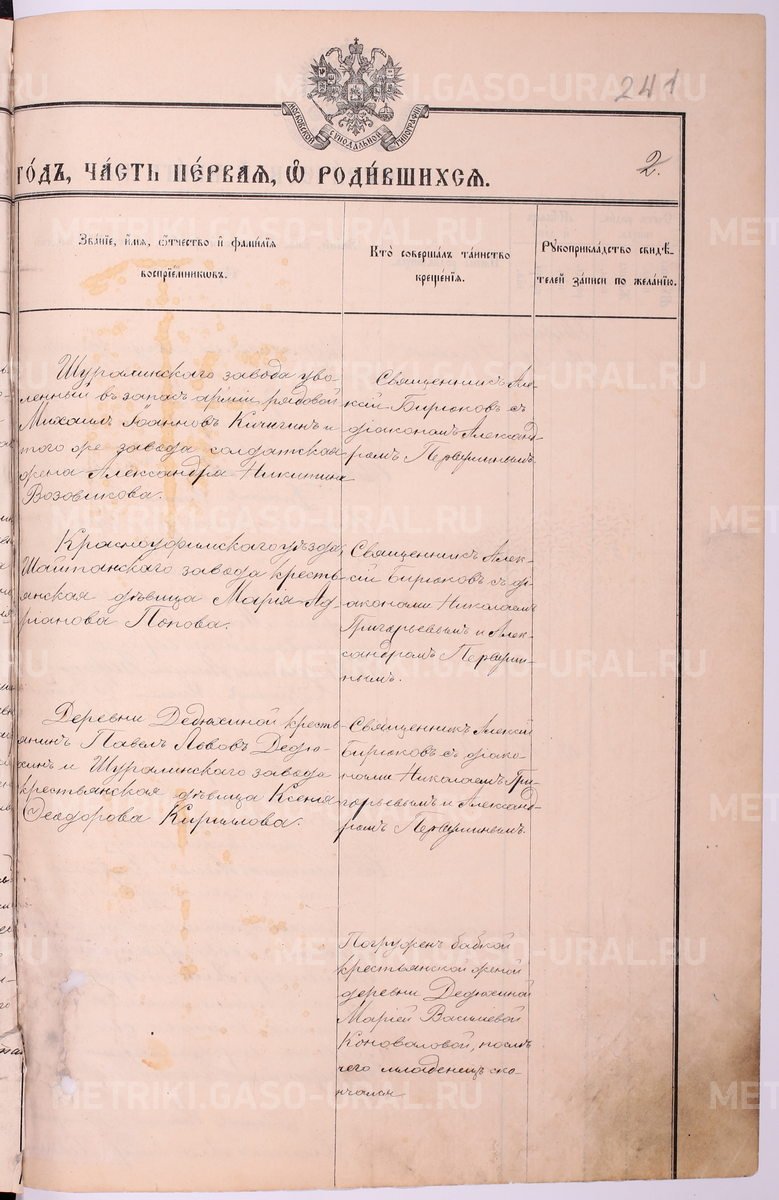 241
МОСКОВСКОЙ СѴНОДАЛЬНОЙ ТИПОГРАФІИ
го́дъ, ча́сть пе́рвая, ѡ҆ роди́вшихся.
2.
Зва́нїе, и҆́мя, ѻ҆́тчество и҆ фами́лїя
воспрїе́мникѡвъ.
Кто̀ соверша́лъ та́инство
креще́нїя.
Рꙋкоприкла́дство свидѣ́-
телей за́писи по жела́нїю.
Шуралинскаго завода уво-
ленный въ запасъ арміи рядовой
Михаилъ Іоанновъ Кичигинъ и
того же завода солдатская
жена Александра Никитина
Возовикова.
Священникъ Але-
ксій Бирюковъ съ
діакономъ Александ-
ромъ Первушинымъ.
Красноуфимскаго уѣзда,
Шайтанскаго завода кресть-
янская дѣвица Марія Ад-
ріанова Попова.
Священникъ Алек-
сій Бирюковъ съ ді-
аконами Николаемъ
Григорьевымъ и Алек-
сандромъ Первуши-
нымъ.
Деревни Дедюхиной кресть-
янинъ Павелъ Львовъ Дедю-
хинъ и Шуралинскаго завода
крестьянская дѣвица Ксенія
Ѳеодорова Кириллова.
Священникъ Алексій
Бирюковъ съ діако-
нами Николаемъ Гри-
горьевымъ и Александ-
ромъ Первушинымъ.
Погруженъ бабкой
крестьянской женой
деревни Дедюхиной
Маріей Васильевой
Коноваловой, послѣ
чего младенецъ ско-
нчался
METRIKI.GASO-URAL.RU